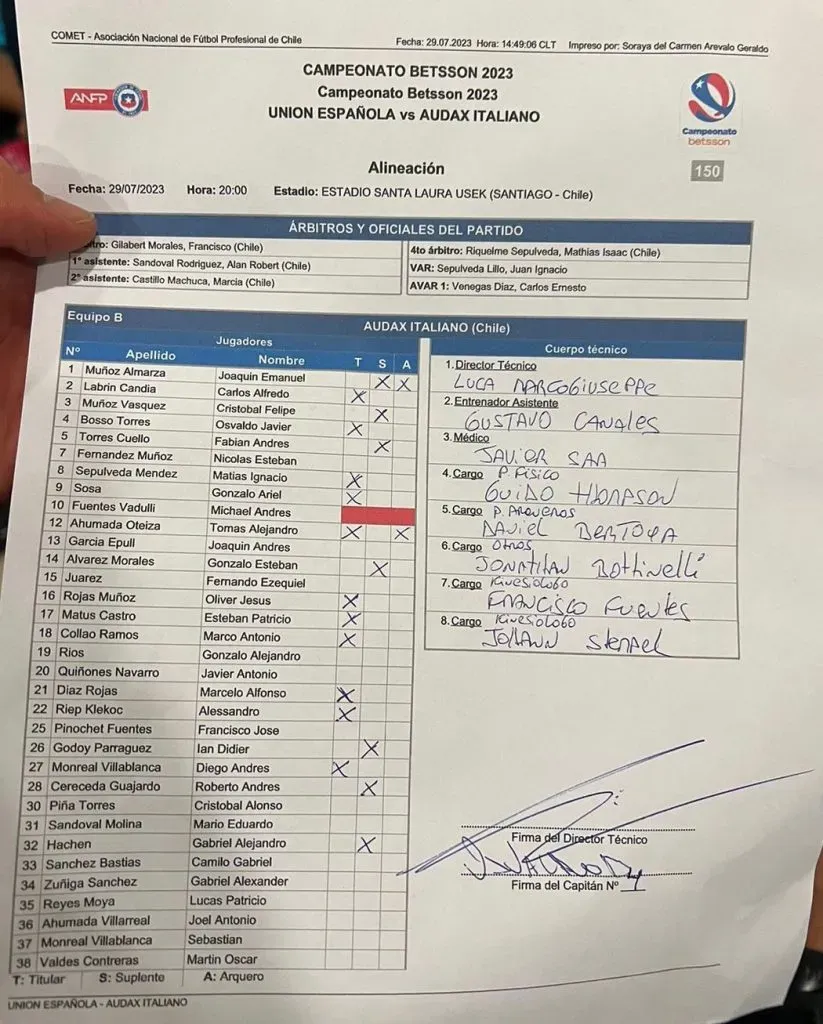 COMET - Asociación Nacional de Fútbol Profesional de Chile Fecha: 29.07.2023 Hora: 14:49:06 CLT Impreso por: Soraya del Carmen Arevalo Geraldo
CAMPEONATO BETSSON 2023
ANFP
Campeonato Betsson 2023
UNION ESPAÑOLA vs AUDAX ITALIANO
Campeonato
betsson
Alineación
150
Fecha: 29/07/2023 Hora: 20:00 Estadio: ESTADIO SANTA LAURA USEK (SANTIAGO - Chile)
ÁRBITROS Y OFICIALES DEL PARTIDO
tro: Gilabert Morales, Francisco (Chile)
1º asistente: Sandoval Rodriguez, Alan Robert (Chile)
2º asistente: Castillo Machuca, Marcia (Chile)
4to árbitro: Riquelme Sepulveda, Mathias Isaac (Chile)
VAR: Sepulveda Lillo, Juan Ignacio
AVAR 1: Venegas Diaz, Carlos Ernesto
Equipo B AUDAX ITALIANO (Chile)
Jugadores
Nº Apellido Nombre T S A
1 Muñoz Almarza Joaquin Emanuel X X
2 Labrin Candia Carlos Alfredo X
3 Muñoz Vasquez Cristobal Felipe X
4 Bosso Torres Osvaldo Javier X
5 Torres Cuello Fabian Andres X
7 Fernandez Muñoz Nicolas Esteban
8 Sepulveda Mendez Matias Ignacio X
9 Sosa Gonzalo Ariel X
10 Fuentes Vadulli Michael Andres
12 Ahumada Oteiza Tomas Alejandro X X
13 Garcia Epull Joaquin Andres
14 Alvarez Morales Gonzalo Esteban X
15 Juarez Fernando Ezequiel
16 Rojas Muñoz Oliver Jesus X
17 Matus Castro Esteban Patricio X
18 Collao Ramos Marco Antonio X
19 Rios Gonzalo Alejandro
20 Quiñones Navarro Javier Antonio
21 Diaz Rojas Marcelo Alfonso X
22 Riep Klekoc Alessandro X
25 Pinochet Fuentes Francisco Jose
26 Godoy Parraguez Ian Didier X
27 Monreal Villablanca Diego Andres X
28 Cereceda Guajardo Roberto Andres X
30 Piña Torres Cristobal Alonso
31 Sandoval Molina Mario Eduardo
32 Hachen Gabriel Alejandro X
33 Sanchez Bastias Camilo Gabriel
34 Zuñiga Sanchez Gabriel Alexander
35 Reyes Moya Lucas Patricio
36 Ahumada Villarreal Joel Antonio
37 Monreal Villablanca Sebastian
38 Valdes Contreras Martin Oscar
T: Titular S: Suplente A: Arquero
Cuerpo técnico
1.Director Técnico
LUCA MARCOGIUSEPPE
2.Entrenador Asistente
GUSTAVO CANALES
3.Médico
JAVIER SAA
4.Cargo P. FISICO
GUIDO THOMPSON
5.Cargo P. ARQUEROS
DANIEL BERTOYA
6.Cargo OTROS
JONATHAN BOTTINELLI
7.Cargo KINESIOLOGO
FRANCISCO FUENTES
8.Cargo KINESIOLOGO
JOHANN
Firma del Director Técnico
Firma del Capitán Nº
UNION ESPAÑOLA - AUDAX ITALIANO